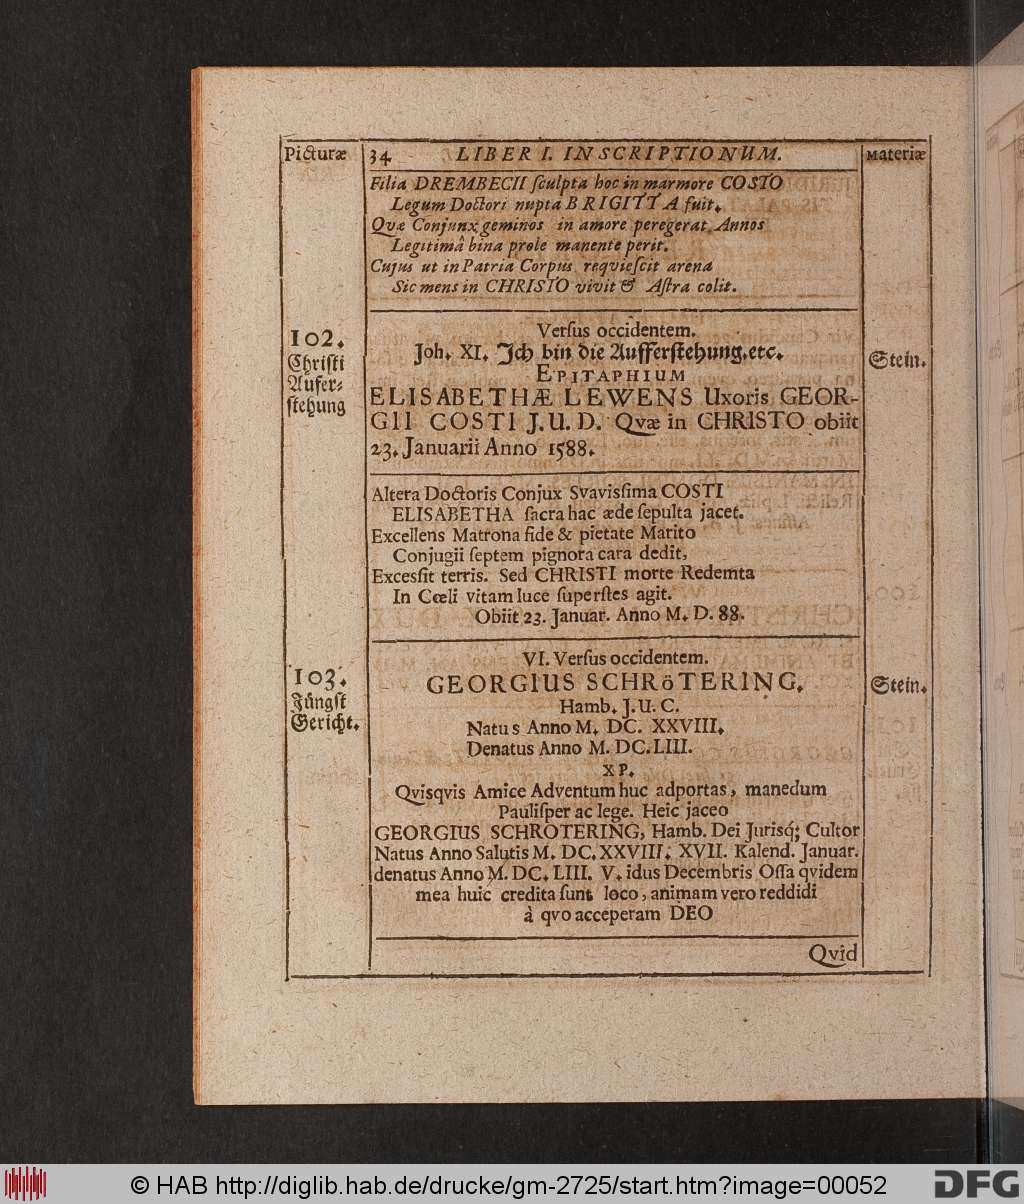 Picturæ
34.
LIBER I. INSCRIPTIONUM.
Materiæ
Filia DREMBECII ſculpta hoc in marmore COSTO
Legum Doctori nupta BRIGITTA fuit.
Qvæ Conjunx geminos in amore peregerat Annos
Legitimâ bina prole manente perit.
Cujus ut in Patria Corpus requieſcit arena
Sic mens in CHRISTO vivit & Aſtra colit.
102.
Chriſti
Aufer-
ſtehung
Verſus occidentem.
Joh. XI. Jch bin die Aufferſtehung.etc.
EPITAPHIUM
ELISABETHÆ LEWENS Uxoris GEOR-
GII COSTI J.U.D. Qvæ in CHRISTO obiit
23. Januarii Anno 1588.
Stein.
Altera Doctoris Conjux Svavisſima COSTI
ELISABETHA ſacra hac æde ſepulta jacet.
Excellens Matrona fide & pietate Marito
Conjugii ſeptem pignora cara dedit,
Excesſit terris. Sed CHRISTI morte Redemta
In Cœli vitam luce ſuperſtes agit.
Obiit 23. Januar. Anno M. D. 88.
103.
Jüngſt
Gericht.
VI. Verſus occidentem.
GEORGIUS SCHRöTERING.
Hamb. J.U.C.
Natus Anno M. DC. XXVIII.
Denatus Anno M. DC. LIII.
XP.
Qvisqvis Amice Adventum huc adportas, manedum
Pauliſper ac lege. Heic jaceo
GEORGIUS SCHROTERING, Hamb. Dei Jurisq́; Cultor
Natus Anno Salutis M. DC. XXVIII. XVII. Kalend. Januar.
denatus Anno M. DC. LIII. V. idus Decembris Oſſa qvidem
mea huic credita ſunt loco, animam vero reddidi
à qvo acceperam DEO
Stein.
Qvid
© HAB http://diglib.hab.de/drucke/gm-2725/start.htm?image=00052
DFG